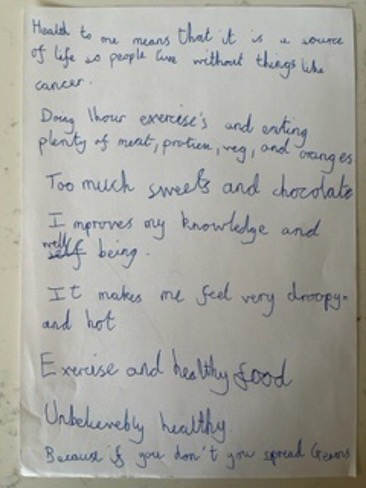 Health to me means that it is a source
of life so people live without things like
cancer.
Doing 1hour exercise's and eating
plenty of meat, protien, veg, and oranges
Too much sweets and chocolate
I mproves my knowledge and
well
self being.
It makes me feel very droopy.
and hot
Exercise and healthy food
Unbelievebly healthy.
Because if you don't you spread Germs